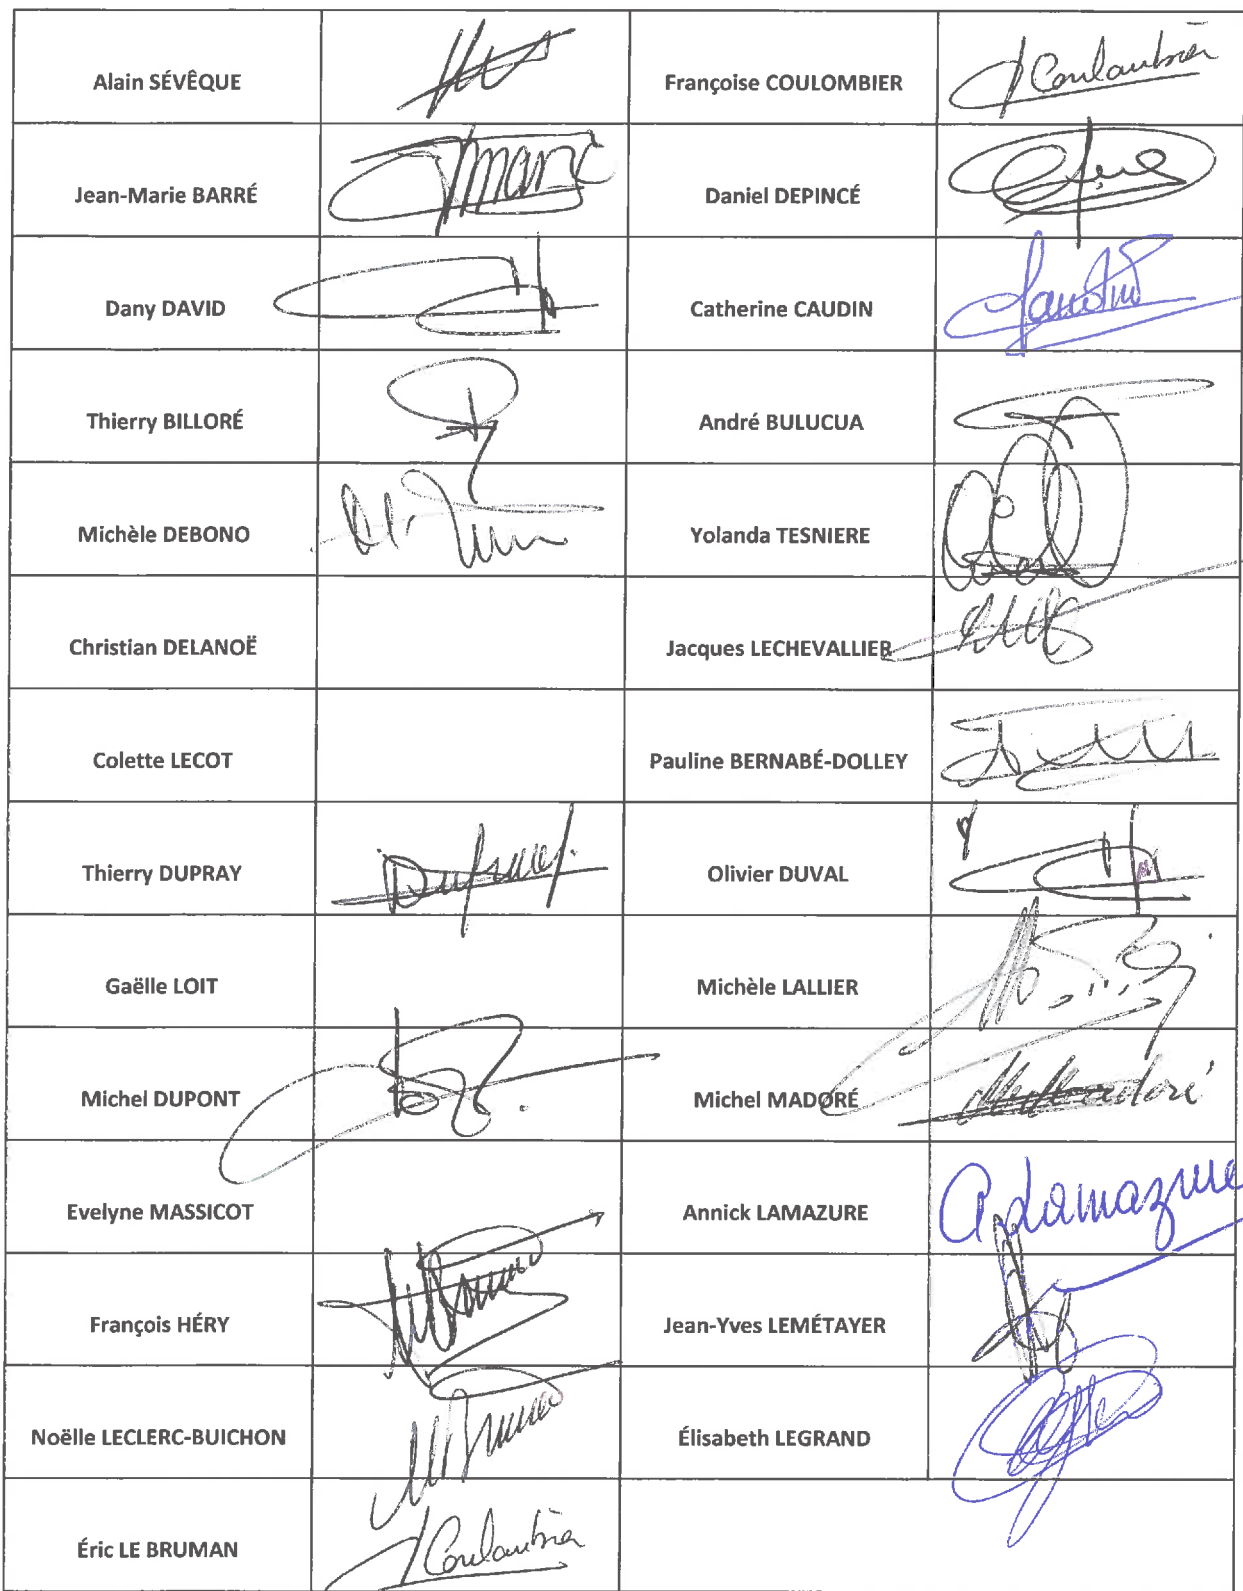 Alain SÉVÊQUE
Françoise COULOMBIER
Coulaubier
Jean-Marie BARRÉ
Daniel DEPINCÉ
Dany DAVID
Catherine CAUDIN
Thierry BILLORÉ
André BULUCUA
Michèle DEBONO
Yolanda TESNIERE
Christian DELANOË
Jacques LECHEVALLIER
Colette LECOT
Pauline BERNABÉ-DOLLEY
Thierry DUPRAY
Olivier DUVAL
Gaëlle LOIT
Michèle LALLIER
Michel DUPONT
Michel MADORÉ
Evelyne MASSICOT
Annick LAMAZURE
A Lamazure
François HÉRY
Jean-Yves LEMÉTAYER
Noëlle LECLERC-BUICHON
Élisabeth LEGRAND
Éric LE BRUMAN
Coulaubier